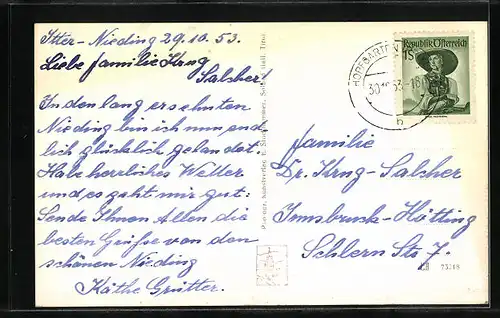 Itter-Nieding 29.10.53.
Liebe familie Krug
Salcher!
In den lang ersehnten
Nieding bin ich nun end
lich glücklich gelandet.
Habe herrliches Wetter
und es geht mir gut.
Sende Ihnen Allen die
besten Grüße von den
schönen Nieding
Käthe Grütter.
HOPFGARTEN
30.10.53-18
h
Republik Österreich
1S
familie
Dr. Krug-Salcher
Innsbruck-Hötting
Schlern Str 7.